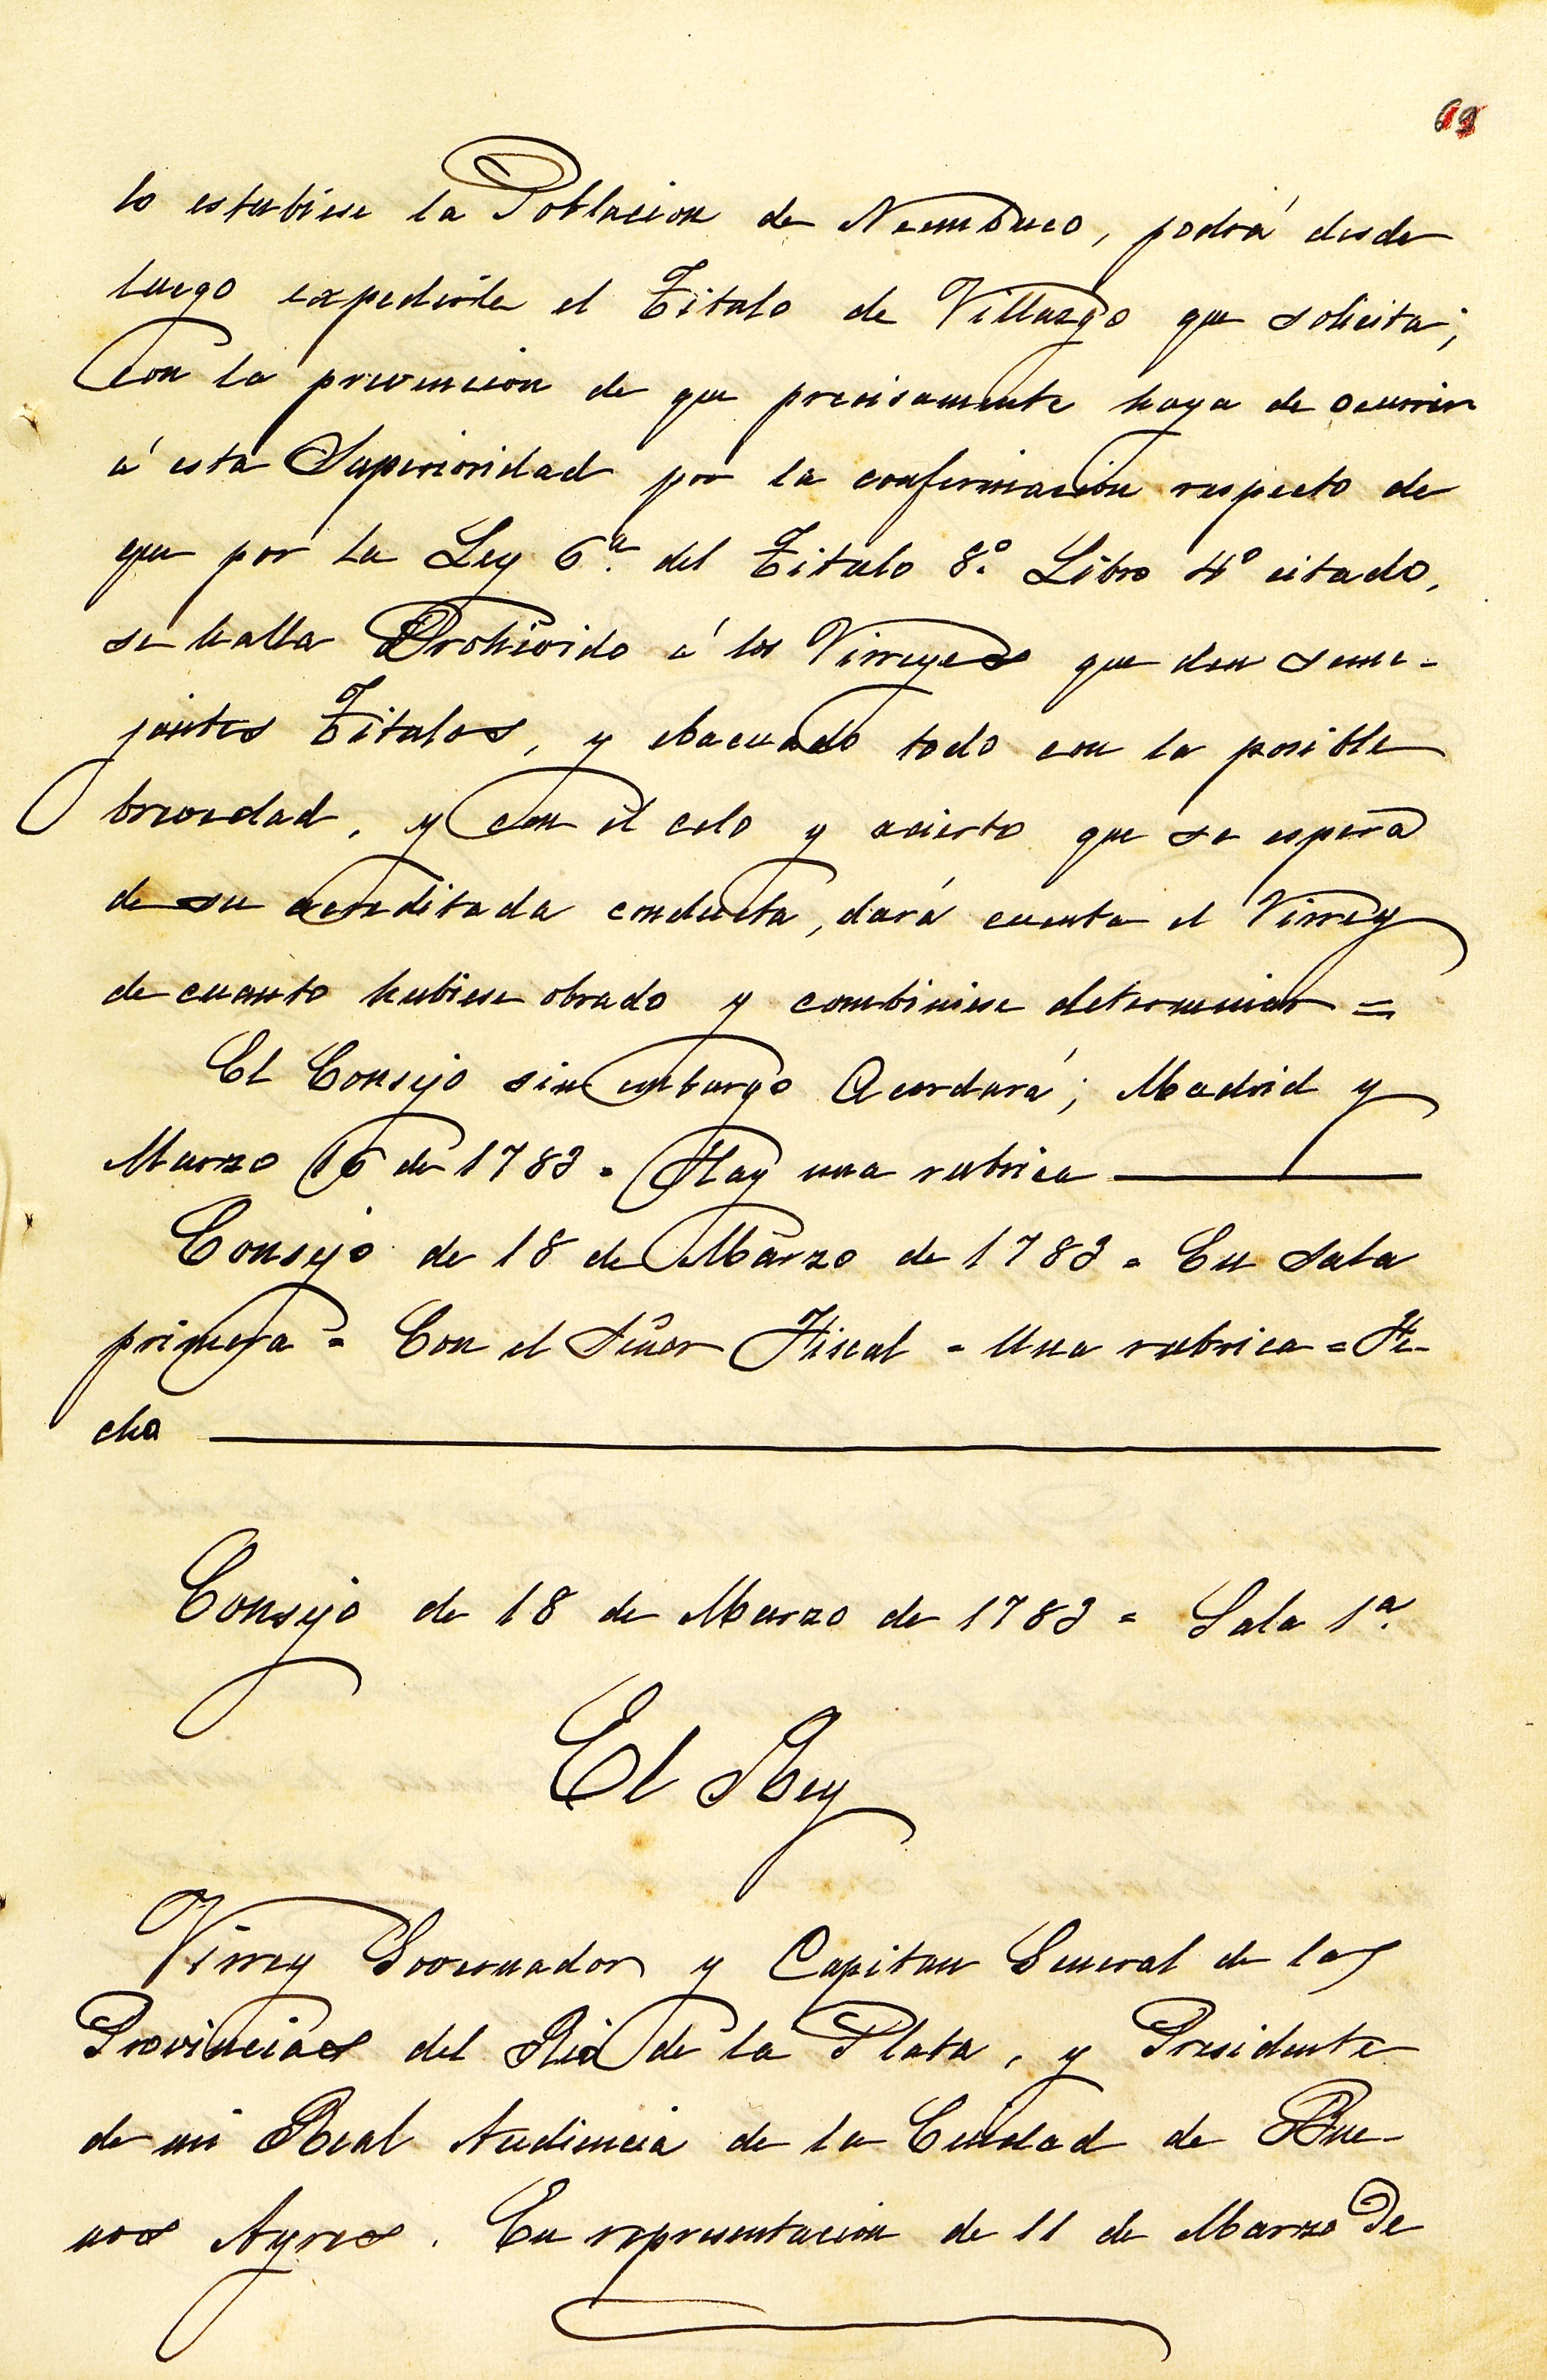 69
lo estubiese la Poblacion de Neembuco, podrá desde
luego expedirle el Titulo de Villazgo que solicita;
con la prevencion de que precisamente haya de ocurrir
á esta Superioridad por la confirmacion respecto de
que por la Ley 6ª. del Titulo 8º. Libro 4º citado,
se halla Prohivido á los Virreyes que den seme-
jantes Titulos, y ebacuado todo con la posible
brevedad, y con el celo y acierto que se espera
de su acreditada conducta, dará cuenta el Virrey
de cuanto hubiese obrado y combiniese determinar =
El Consejo sin embargo Acordará; Madrid y
Marzo 16 de 1783 = Hay una rubrica
Consejo de 18 de Marzo de 1783 = En Sala
primera = Con el Señor Fiscal = Una rubrica = Fe-
cha
Consejo de 18 de Marzo de 1783 = Sala 1ª.
El Rey
Virrey Governador y Capitan General de las
Provincias del Rio de la Plata, y Presidente
de mi Real Audiencia de la Ciudad de Bue-
nos Ayres. En representacion de 11 de Marzo de